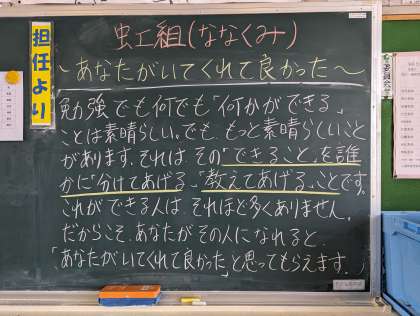 虹組(ななくみ)
～あなたがいてくれて良かった～
担任より
勉強でも何でも「何かができる」
ことは素晴らしい。でも、もっと素晴らしいこと
があります。それは、その「できること」を誰
かに「分けてあげる」「教えてあげる」ことです。
これができる人は、それほど多くありません。
だからこそ、あなたがその人になれると、
「あなたがいてくれて良かった」と思ってもらえます。